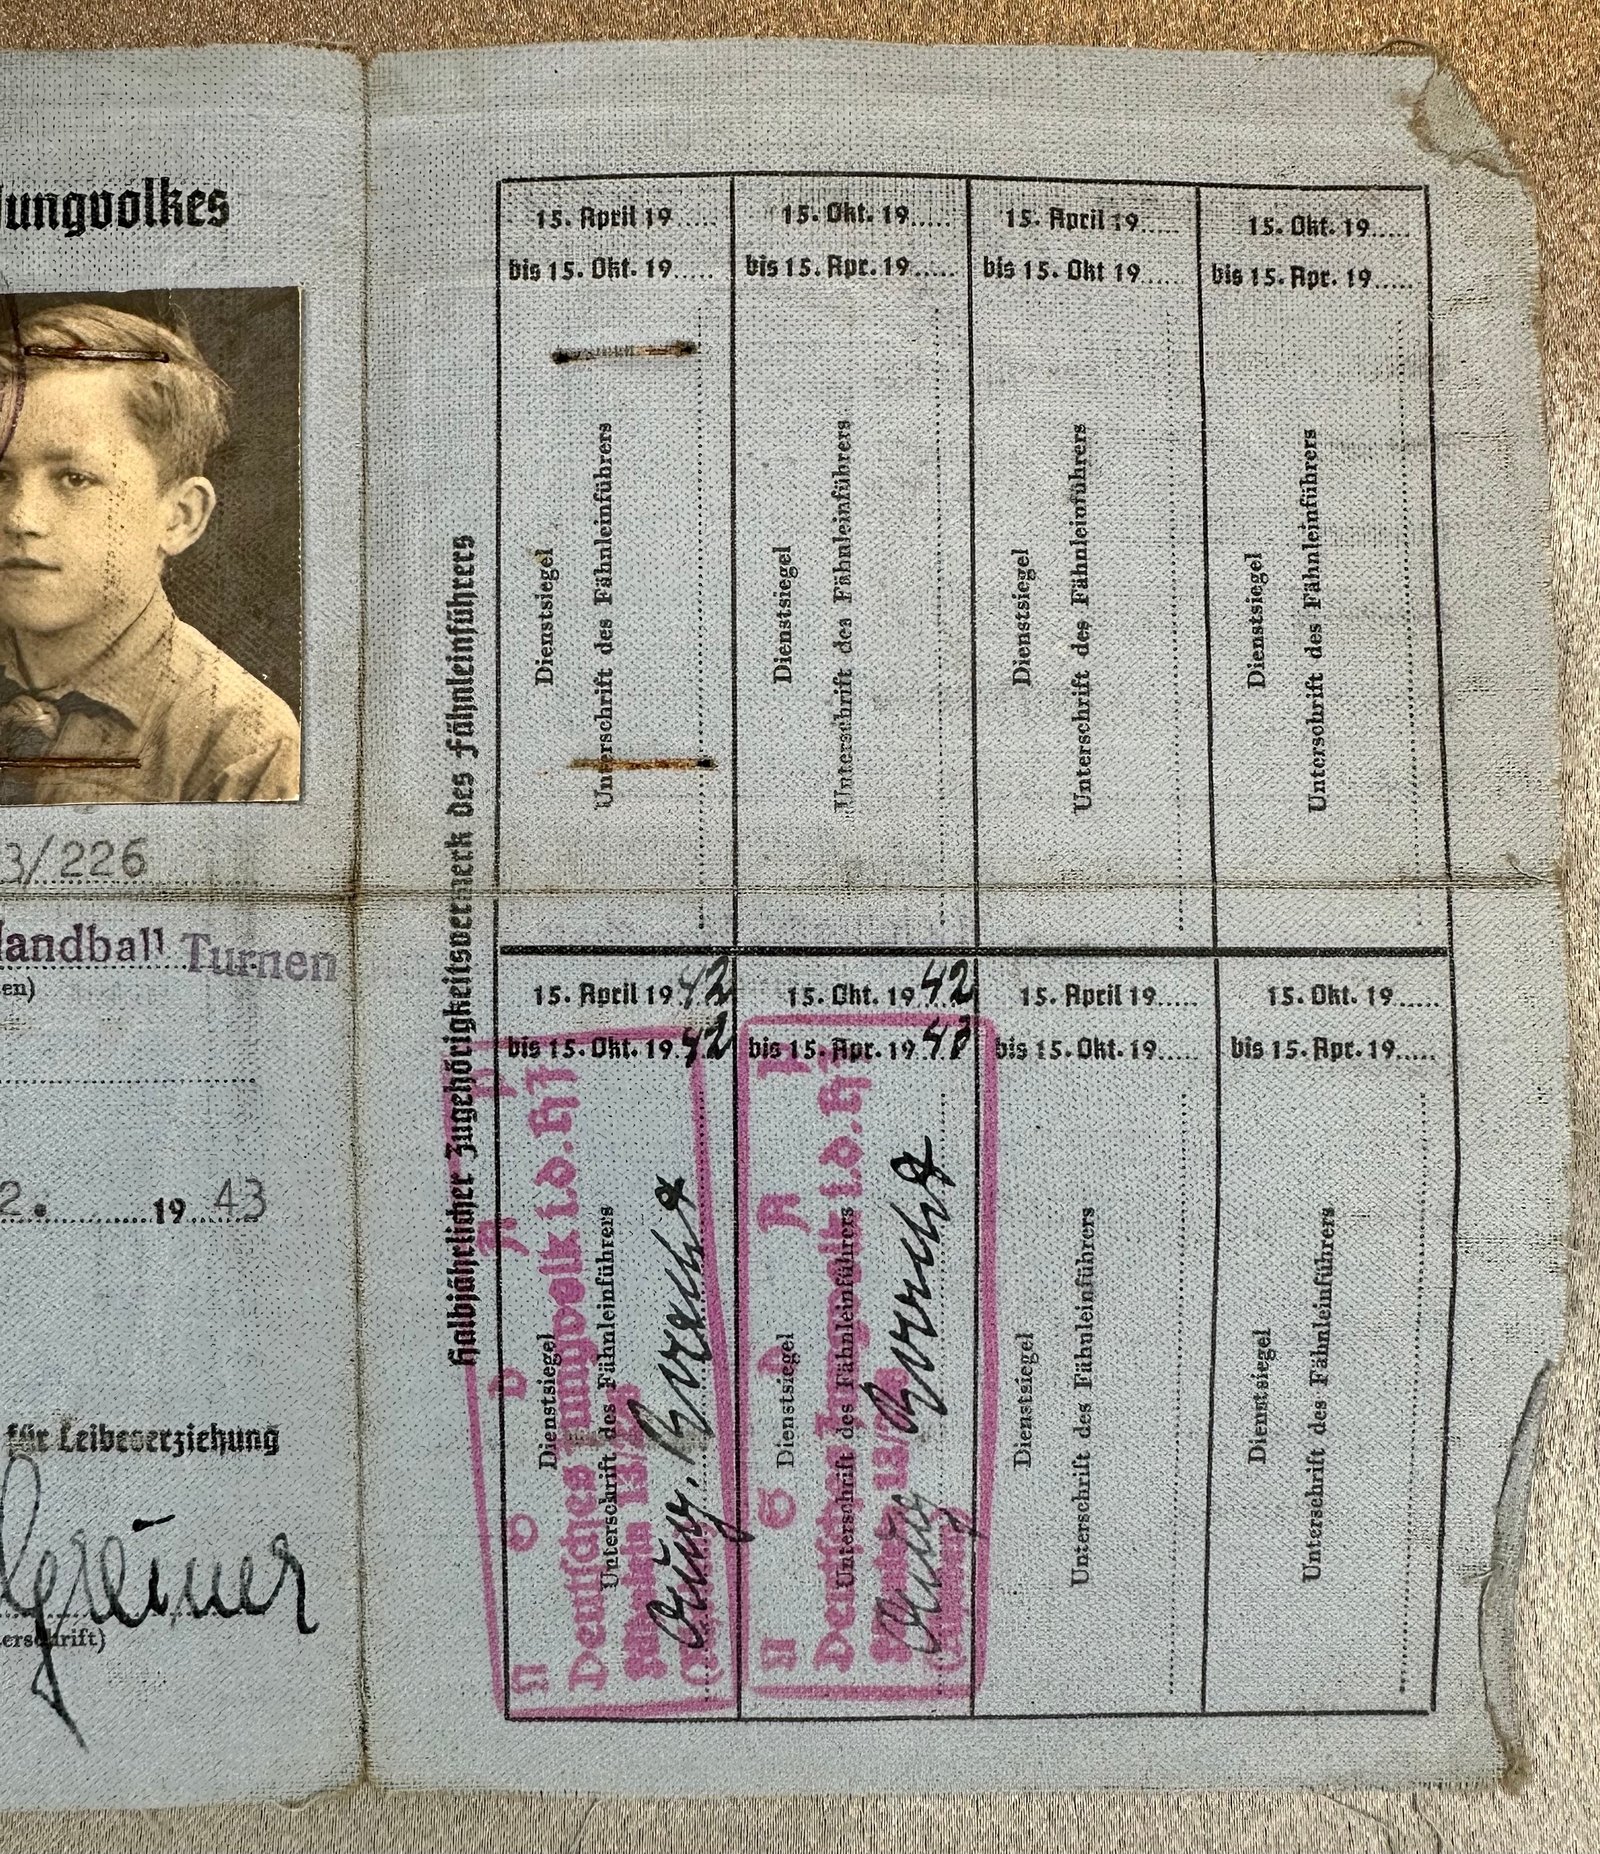 Jungvolkes
3/226
Handball Turnen
en)
2. 19 43
für Leibeserziehung
Greiner
erschrift)
Halbjährlicher Zugehörigkeitsvermerk des Fähnleinführers
15. April 19.....
bis 15. Okt. 19.....
Dienstsiegel
Unterschrift des Fähnleinführers
15. Okt. 19.....
bis 15. Apr. 19.....
Dienstsiegel
Unterschrift des Fähnleinführers
15. April 19.....
bis 15. Okt 19.....
Dienstsiegel
Unterschrift des Fähnleinführers
15. Okt. 19.....
bis 15. Apr. 19.....
Dienstsiegel
Unterschrift des Fähnleinführers
15. April 19 42
bis 15. Okt. 19 42
Dienstsiegel
Unterschrift des Fähnleinführers
N S D A P
Deutsches Jungvolk i.d. HJ
15. Okt. 19 42
bis 15. Apr. 19 43
Dienstsiegel
Unterschrift des Fähnleinführers
N S D A P
Deutsches Jungvolk i.d. HJ
15. April 19.....
bis 15. Okt. 19.....
Dienstsiegel
Unterschrift des Fähnleinführers
15. Okt. 19.....
bis 15. Apr. 19.....
Dienstsiegel
Unterschrift des Fähnleinführers